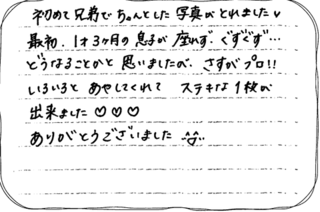 初めて兄弟でちゃんとした写真がとれました♡
最初、1才3ヶ月の息子が座れず、ぐずぐず…
どうなることかと思いましたが、さすがプロ!!
いろいろとあやしてくれて ステキな1枚が
出来ました♡♡♡
ありがとうございました